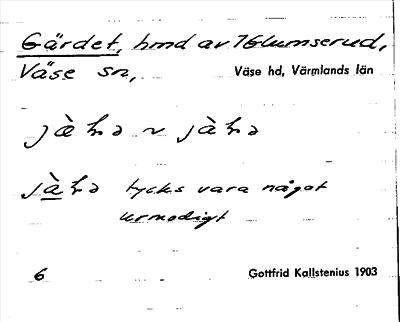 Gärdet, hmd av Glumserud,
Väse sn,
Väse hd, Värmlands län
jàhə ~ jàhə
jàhə tycks vara något
urmodigt
6
Gottfrid Kallstenius 1903